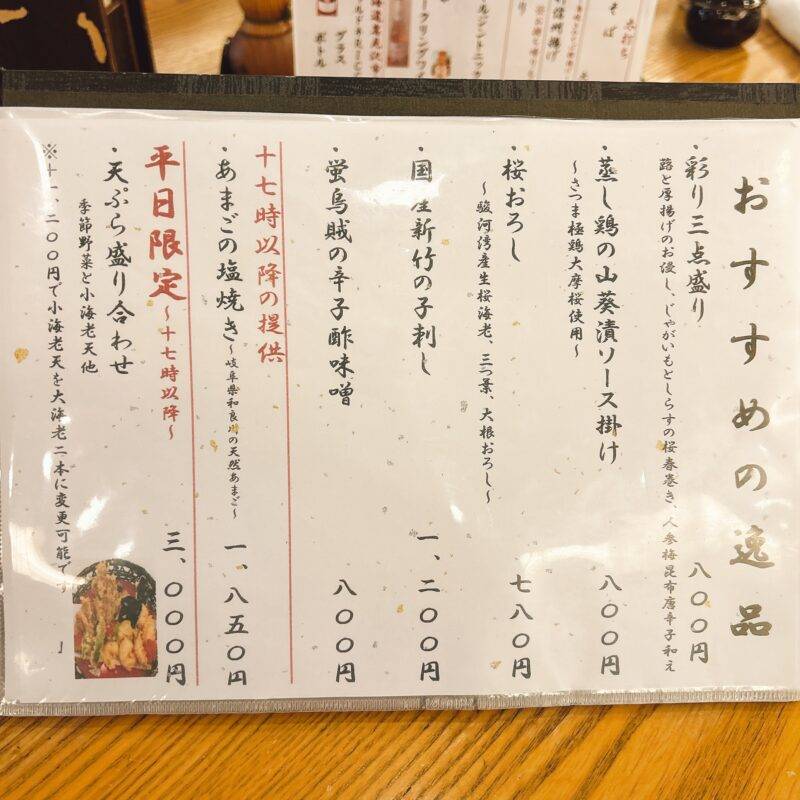 おすすめの逸品
・彩り三点盛り 八〇〇円
蕗と厚揚げのお浸し、じゃがいもとしらすの桜春巻き、人参梅昆布唐辛子和え
・蒸し鶏の山葵漬ソース掛け 八〇〇円
～さつま極鶏大摩桜使用～
・桜おろし 七八〇円
～駿河湾産生桜海老、三つ葉、大根おろし～
・国産新竹の子刺し 一、二〇〇円
・蛍烏賊の辛子酢味噌 八〇〇円
十七時以降の提供
・あまごの塩焼き～岐阜県和良川の天然あまご～ 一、八五〇円
平日限定～十七時以降～
・天ぷら盛り合わせ 三、〇〇〇円
季節野菜と小海老天他
※＋一、二〇〇円で小海老天を大海老二本に変更可能です
グラス
ボトル
そば